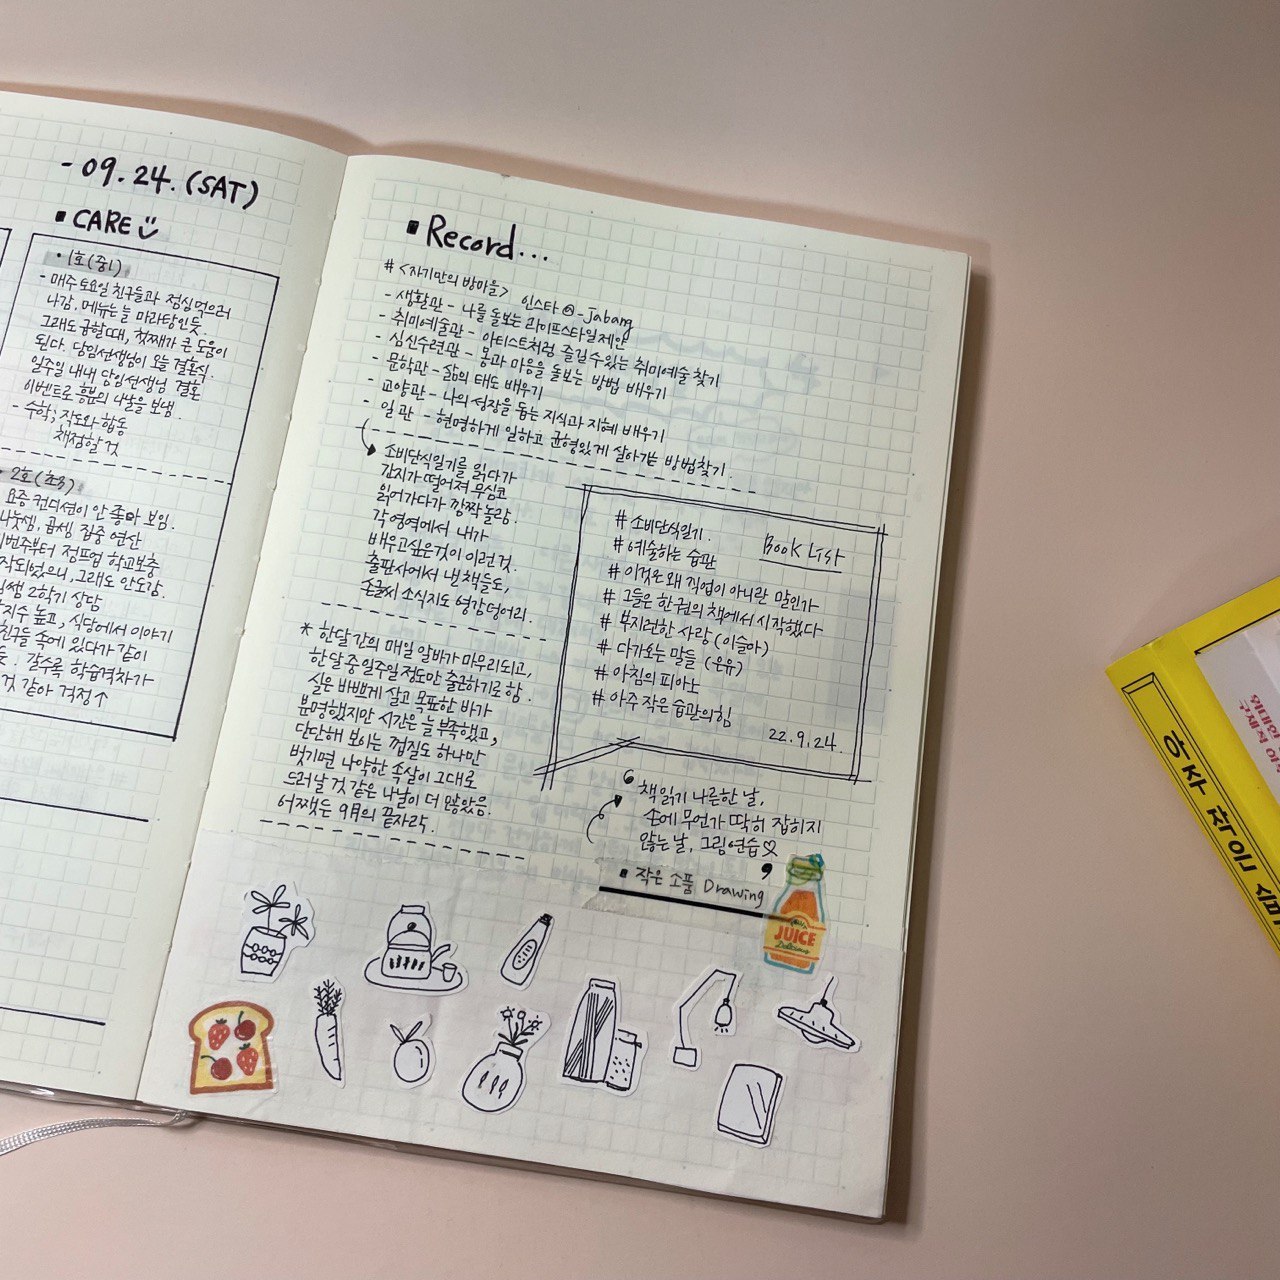 - 09.24.(SAT)
▪ CARE
• 1호(중1)
- 매주 토요일 친구들과 점심먹으러
나감. 메뉴는 늘 마라탕인듯.
그래도 급할때, 첫째가 큰 도움이
된다. 담임선생님이 오늘 결혼식.
일주일 내내 담임선생님 결혼
이벤트로 흥분의 나날을 보냄.
- 수학; 작도와 합동
채점할 것
2호(초3)
요즘 컨디션이 안 좋아 보임.
나눗셈, 곱셈 집중 연산
이번주부터 점프업 학교보충
작되었으니, 그래도 안도감.
2학기 상담
지수 높고, 식당에서 이야기
친구들 속에 있다가 같이
듯. 갈수록 학습격차가
것 같아 걱정↑
▪ Record...
# <자기만의 방마을> 인스타 @-jabang
- 생활관 - 나를 돌보는 라이프스타일제안
- 취미예술관 - 아티스트처럼 즐길수있는 취미예술 찾기
- 심신수련관 - 몸과 마음을 돌보는 방법 배우기
- 문학관 - 삶의 태도 배우기
- 교양관 - 나의 성장을 돕는 지식과 지혜 배우기
- 일관 - 현명하게 일하고 균형있게 살아가는 방법찾기.
소비단식일기를 읽다가
감지가 떨어져 무심코
읽어가다가 깜짝 놀람.
각 영역에서 내가
배우고싶은것이 이런 것.
출판사에서 낸 책들도,
손글씨 소식지도 영감덩어리.
* 한달간의 매일 알바가 마무리되고,
한달 중 일주일 정도만 출근하기로 함.
실은 바쁘게 살고 목표한 바가
분명했지만 시간은 늘 부족했고,
단단해 보이는 껍질도 하나만
벗기면 나약한 속살이 그대로
드러날 것 같은 나날이 더 많았음.
어쨌든 9月의 끝자락.
Book List
# 소비단식일기.
# 예술하는 습관
# 이것은 왜 직업이 아니란 말인가
# 그들은 한권의 책에서 시작했다
# 부지런한 사랑 (이슬아)
# 다가오는 말들 (은유)
# 아침의 피아노
# 아주 작은 습관의 힘
22.9.24.
책읽기 나른한 날,
손에 무언가 딱히 잡히지
않는 날, 그림연습♡
▪ 작은 소품 Drawing
JUICE
Delicious
아주 작은 습관
위대한